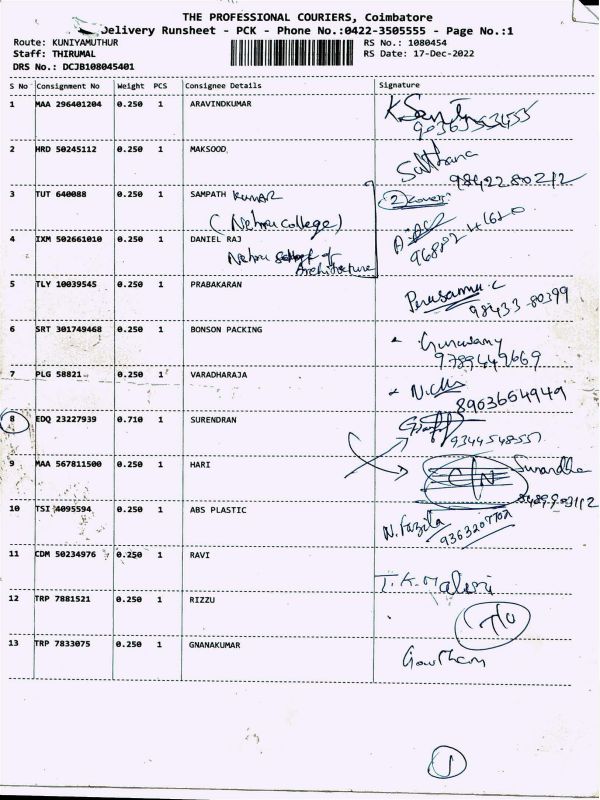 THE PROFESSIONAL COURIERS, Coimbatore
Delivery Runsheet - PCK - Phone No.:0422-3505555 - Page No.:1
Route: KUNIYAMUTHUR
RS No.: 1080454
Staff: THIRUMAL
RS Date: 17-Dec-2022
DRS No.: DCJB108045401
S No Consignment No Weight PCS Consignee Details Signature
1 MAA 296401204 0.250 1 ARAVINDKUMAR
2 HRD 50245112 0.250 1 MAKSOOD
9842280212
3 TUT 640088 0.250 1 SAMPATH Kumar 2 covers
(Nehru college)
4 IXM 502661010 0.250 1 DANIEL RAJ
Nehru School of
Architecture
5 TLY 10039545 0.250 1 PRABAKARAN
98433 80399
6 SRT 301749468 0.250 1 BONSON PACKING
9789449669
7 PLG 58821 0.250 1 VARADHARAJA
8903664949
8 EDQ 23227939 0.710 1 SURENDRAN
9344548557
9 MAA 567811500 0.250 1 HARI
10 TSI 4095594 0.250 1 ABS PLASTIC
N. Fazila
9363207702
11 CDM 50234976 0.250 1 RAVI
T.K. Malini
12 TRP 7881521 0.250 1 RIZZU
13 TRP 7833075 0.250 1 GNANAKUMAR
Gowtham